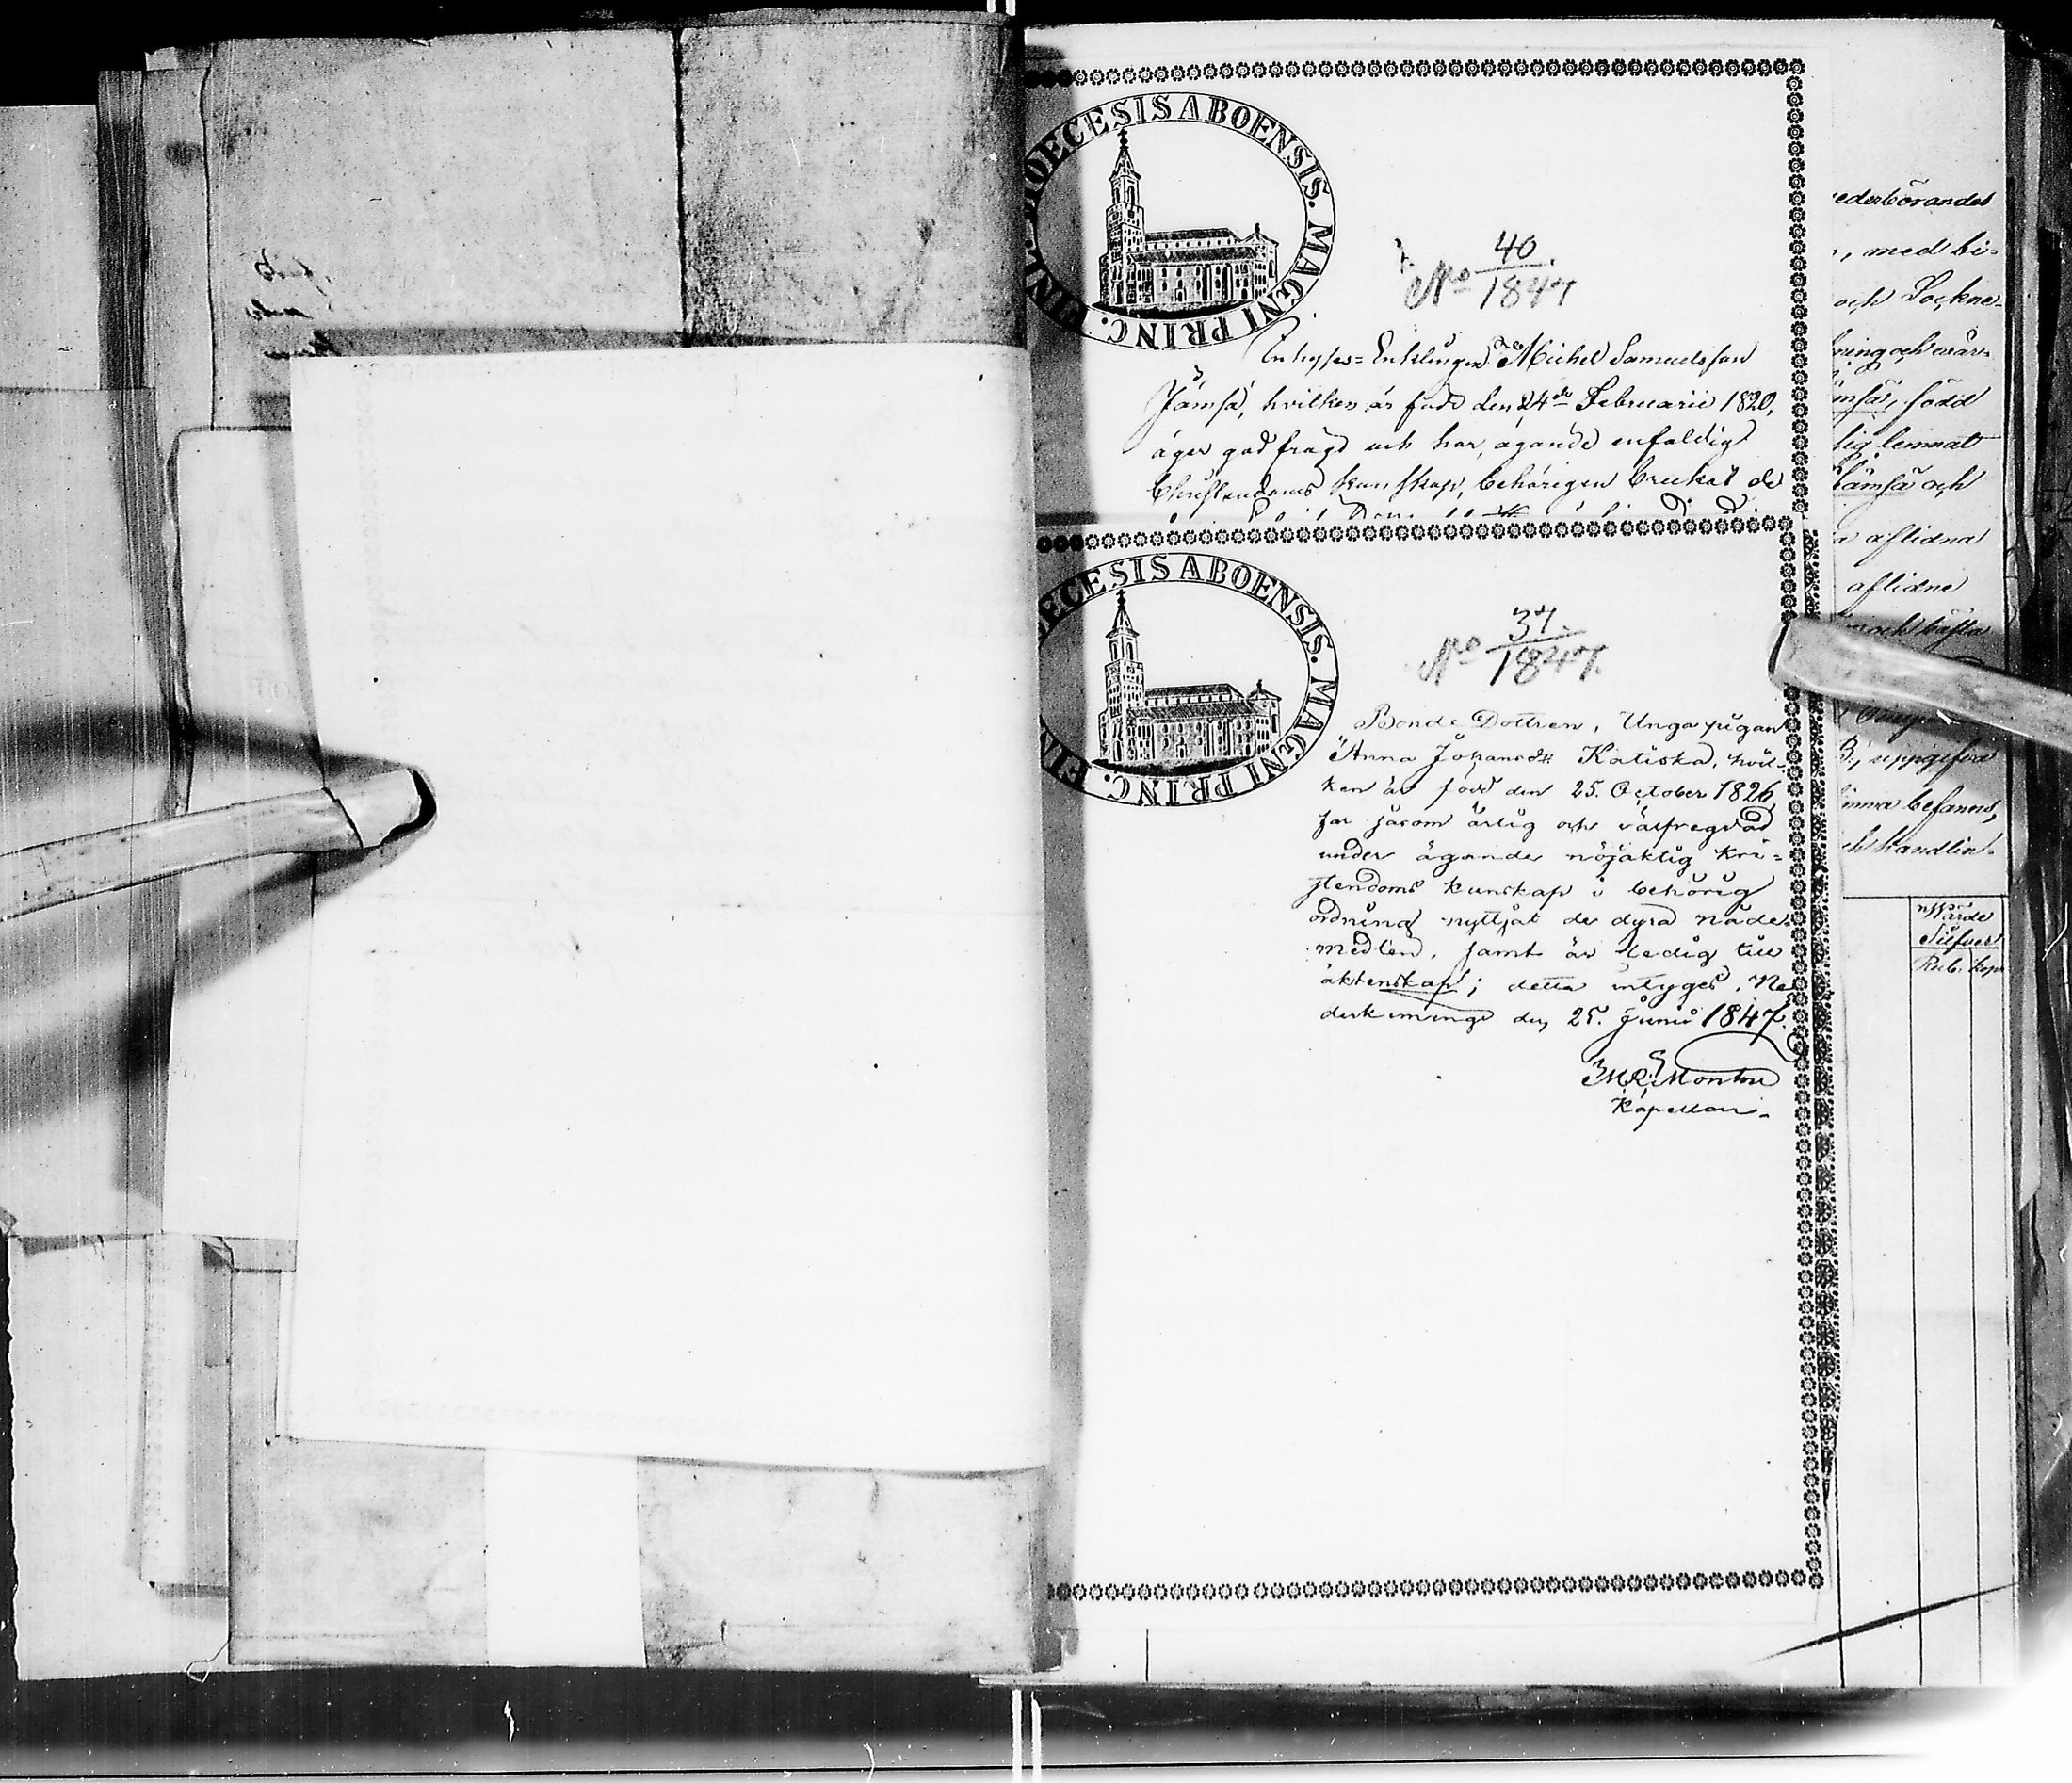 DIOECESIS ABOENSIS. MAGNI PRINC. FINL.
No 40/1847
Inhyses-Enklingen Michel Samuelsson
Jämsä, hvilken är född den 24de Februarii 1820,
äger god frägd och har, ägande enfaldig
Christendoms kunskap, behörigen brukat de
DIOECESIS ABOENSIS. MAGNI PRINC. FIN
No 37/1847.
Bonde Dottren, Unga pigan
Anna Johansdr Katiska, hvil-
ken är född den 25. October 1826,
har såsom ärlig och välfregdad
under ägande nöjaktig Kri-
stendoms kunskap i behörig
ordning nyttjat de dyra nåde
medlen, samt är ledig till
äktenskap; detta intyges. Ne
derkimingi den 25. Junii 1847.
Montin
Kapellan.
ederbörandes
, med bi-
och Sockne-
ning och vär-
född
lig lemnat
Jämsä och
a aflidna
aflidne
och bästa
B, uppgifva
befanns,
ch handlin-
Wärde
Silfver
Rub. kop